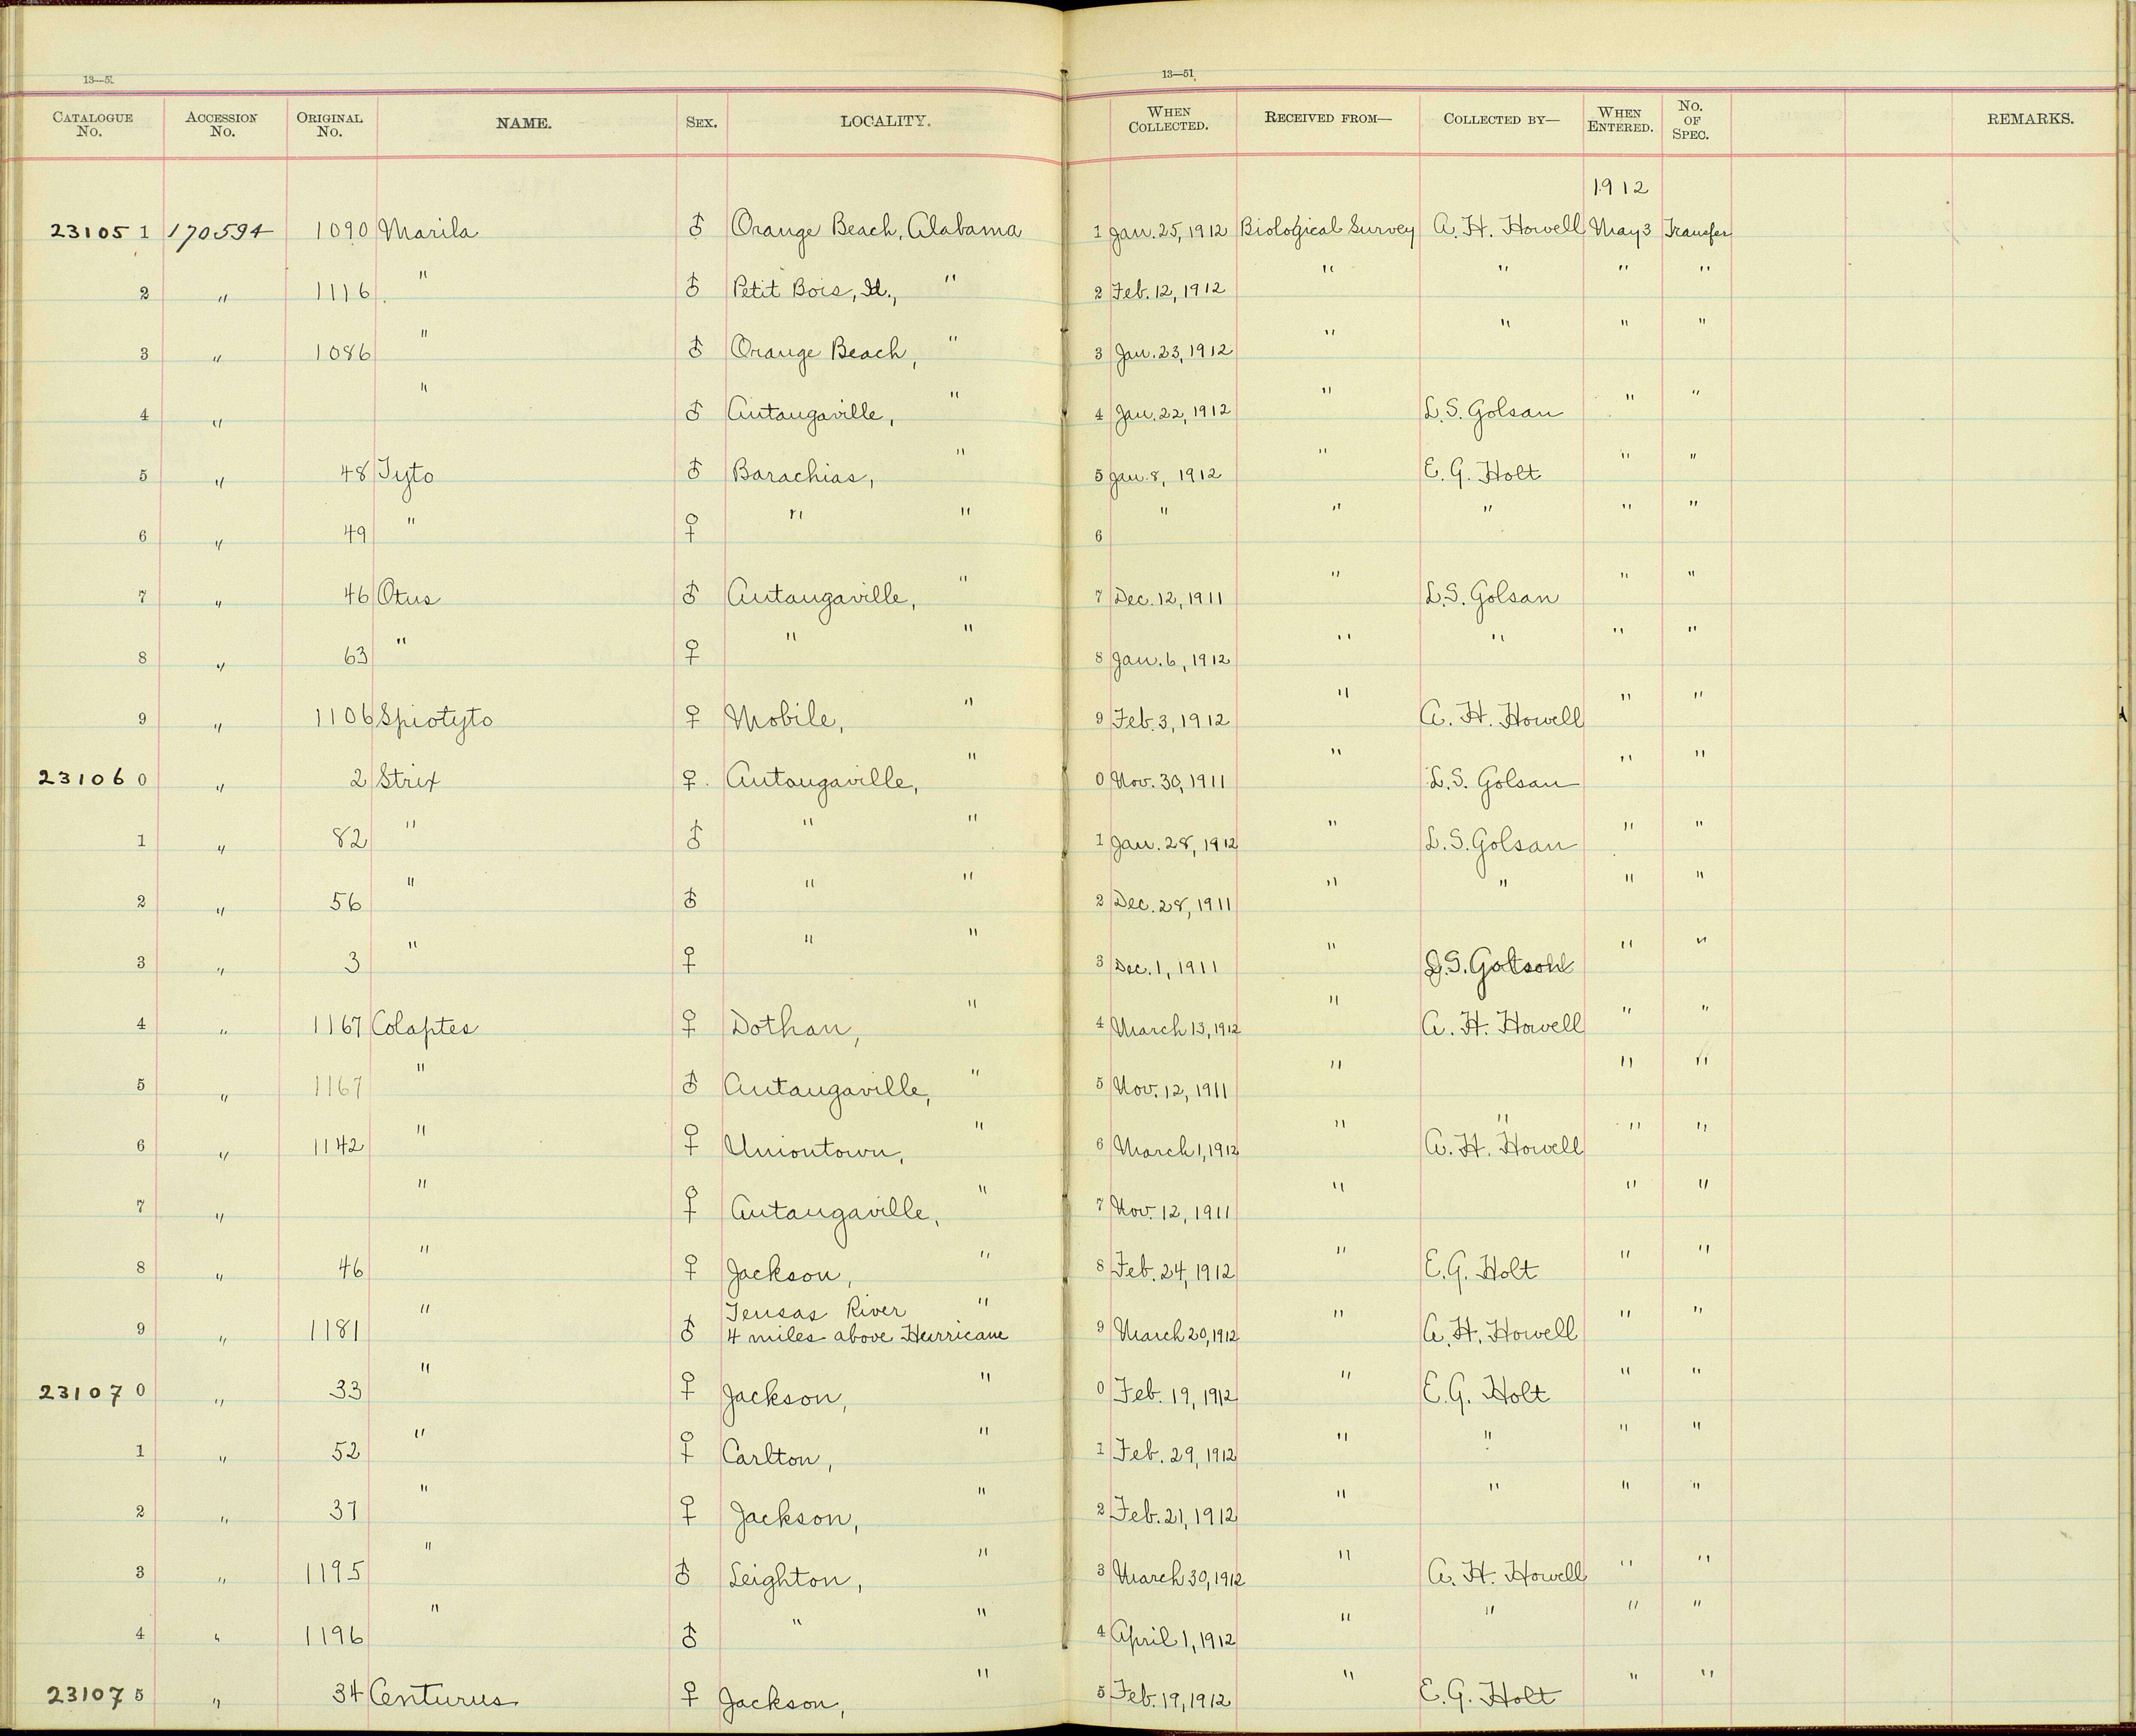 13—51
13—51
CATALOGUE No. ACCESSION No. ORIGINAL No. NAME. SEX. LOCALITY. WHEN COLLECTED. RECEIVED FROM— COLLECTED BY— WHEN ENTERED. NO. OF SPEC. REMARKS.
1912
231051 170594 1090 Marila ♂ Orange Beach, Alabama 1 Jan. 25, 1912 Biological Survey A. H. Howell May 3 Transfer
2 " 1116 " ♂ Petit Bois, Id., " 2 Feb. 12, 1912 " " " "
3 " 1086 " ♂ Orange Beach, " 3 Jan. 23, 1912 " " " "
4 " " ♂ Autaugaville, " 4 Jan. 22, 1912 " L. S. Golsan " "
5 " 48 Tyto ♂ Barachias, " 5 Jan. 8, 1912 " E. G. Holt " "
6 " 49 " ♀ " " 6 " " " " "
7 " 46 Otus ♂ Autaugaville, " 7 Dec. 12, 1911 " L. S. Golsan " "
8 " 63 " ♀ " " 8 Jan. 6, 1912 " " " "
9 " 1106 Spiotyto ♀ Mobile, " 9 Feb. 3, 1912 " A. H. Howell " "
231060 " 2 Strix ♀ Autaugaville, " 0 Nov. 30, 1911 " L. S. Golsan " "
1 " 82 " ♂ " " 1 Jan. 28, 1912 " L. S. Golsan " "
2 " 56 " ♂ " " 2 Dec. 28, 1911 " " " "
3 " 3 " ♀ " " 3 Dec. 1, 1911 " " "
4 " 1167 Colaptes ♀ Dothan, " 4 March 13, 1912 " A. H. Howell " "
5 " 1167 " ♂ Autaugaville, " 5 Nov. 12, 1911 " " "
6 " 1142 " ♀ Uniontown, " 6 March 1, 1912 " " A. H. Howell " "
7 " " ♀ Autaugaville, " 7 Nov. 12, 1911 " " "
8 " 46 " ♀ Jackson, " 8 Feb. 24, 1912 " E. G. Holt " "
Tensas River "
9 " 1181 " ♂ 4 miles above Hurricane 9 March 20, 1912 " A. H. Howell " "
231070 " 33 " ♀ Jackson, " 0 Feb. 19, 1912 " E. G. Holt " "
1 " 52 " ♀ Carlton, " 1 Feb. 29, 1912 " " " "
2 " 37 " ♀ Jackson, " 2 Feb. 21, 1912 " " " "
3 " 1195 " ♂ Leighton, " 3 March 30, 1912 " A. H. Howell " "
4 " 1196 " ♂ " " 4 April 1, 1912 " " " "
231075 " 34 Centurus ♀ Jackson, " 5 Feb. 19, 1912 " E. G. Holt " "